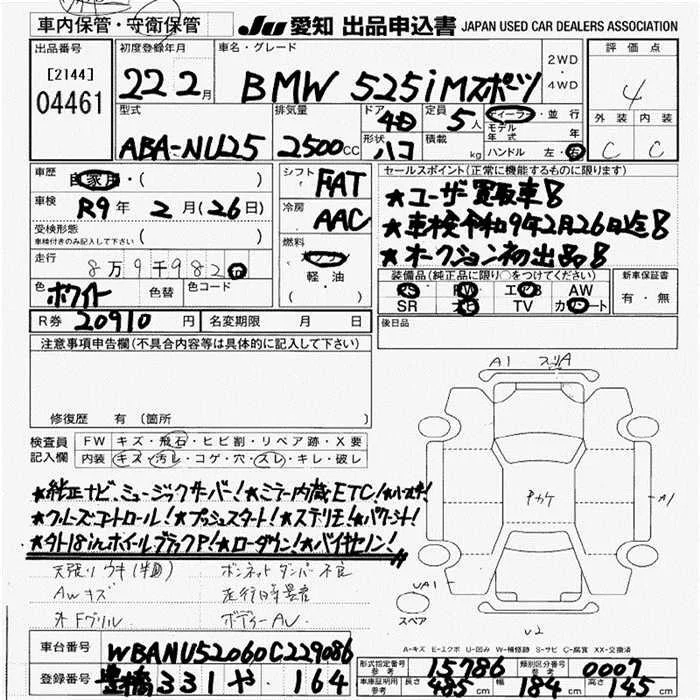 車内保管・守衛保管
JU 愛知 出品申込書 JAPAN USED CAR DEALERS ASSOCIATION
出品番号 [2144] 04461
初度登録年月 22 2月
車名・グレード BMW 525i Mスポーツ
2WD・4WD
評価点 4
型式 ABA-NU25
排気量 2500 CC
ドア 4D
形状 ハコ
定員 5人
積載 kg
ディーラー・並行
モデル年式 年
ハンドル 左・右
外装 C 内装 C
車歴 自家用・( )
車検 R9年 2月(26日)
受検形態 ( )
車検付きのみ記入して下さい
走行 8万9千982
色 ホワイト 色替 色コード
シフト FAT
冷房 AAC
燃料 軽油 ( )
セールスポイント(正常に機能するものに限ります)
★ユーザ買取車!
★車検令和9年2月26日迄!
★オークション初出品!
装備品(純正品に限り○をつけてください)
PS PW エアB AW
SR ナビ TV カワシート
新車保証書 有・無
R券 20910円 名変期限 月 日
後日品
注意事項申告欄(不具合内容等は具体的に記入して下さい)
修復歴 有 (箇所 )
検査員記入欄
FW キズ・飛石・ヒビ割・リペア跡・X要
内装 キズ・汚レ・コゲ・穴・スレ・キレ・破レ
★純正ナビ、ミュージックサーバー!★ミラー内蔵ETC!
★クルーズコントロール!★プッシュスタート!★ステリモ!
★外18inホイールブラックP!★ローダウン!★バイキセノン!
天張りウキ(半面) ボンネットダンパー不良
AWキズ
ボディーAU
A1
A1
UA1
U2
スペア
A-キズ E-エクボ U-凹み W-補修跡 S-サビ C-腐食 XX-交換済
車台番号 WBANU52060C229086
登録番号 豊橋 331 や ・164
形式指定番号 参考 15786 類別区分番号 参考 0007
車庫証明用 参考 長さ 485cm 幅 184cm 高さ 145cm